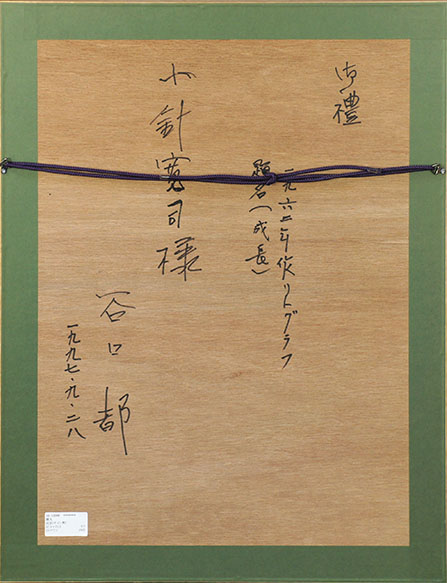 御禮
一九六二年作リトグラフ
題名(成長)
小針寛司様
谷口都
一九九七・九・二八